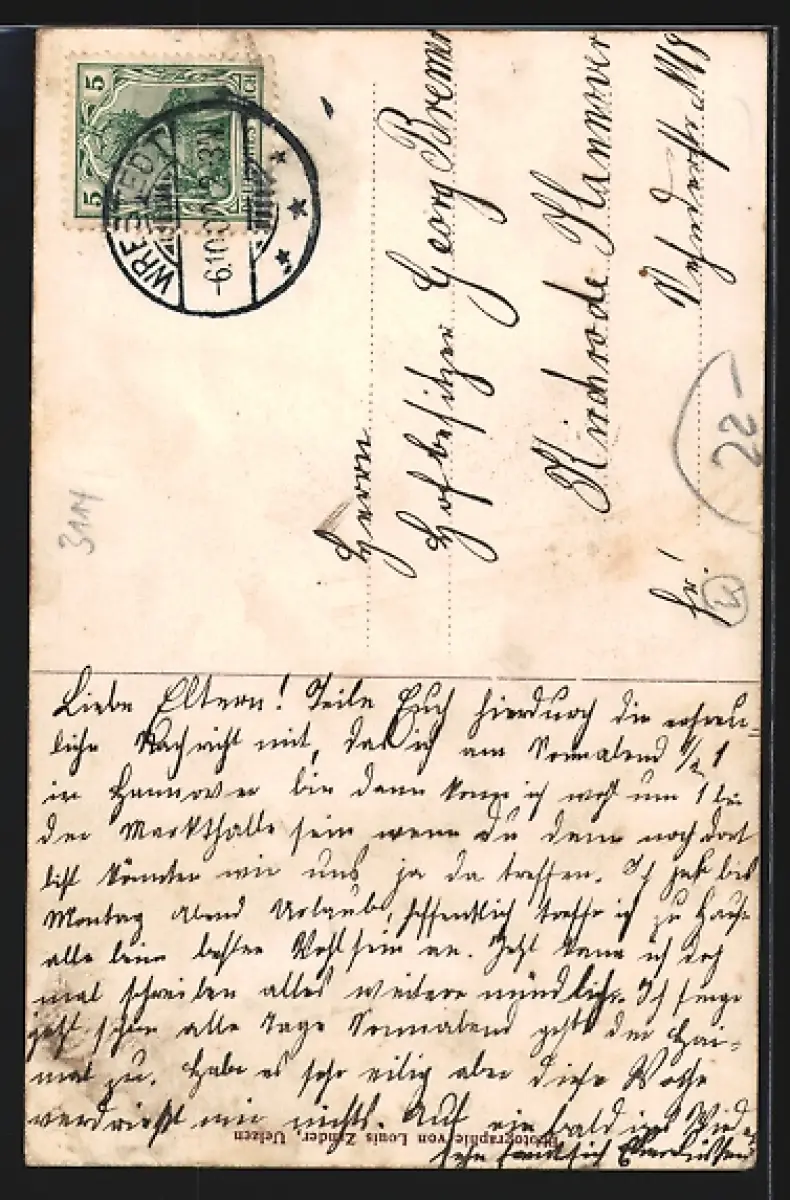 5 5
WRESTEDT
-6.10.
Herrn
Hofbesitzer Georg Bremer
Kirchrode Hannover
No 8
fr!
22-
3114
Liebe Eltern! Teile Euch hierdurch die erfreu-
liche Nachricht mit, daß ich am Sonnabend 1/2 1
in Hannover bin dann kann ich wohl um 1 bei
der Markthalle sein wenn du dann noch dort
bist könnten wir uns ja da treffen. Ich hab bis
Montag Abend Urlaub, hoffentlich treffe ich zu Hause
alle beim besten Wohlsein an. Jetzt kann ich doch
mal schreiben alles weitere mündlich. Ich singe
jetzt schon alle Tage Sonnabend gehts der Hei-
mat zu. Habe es sehr eilig aber diese Woche
verdrießt mir nichts. Auf ein baldiges Wieder
sehn
Photographie von Louis Zander, Uelzen